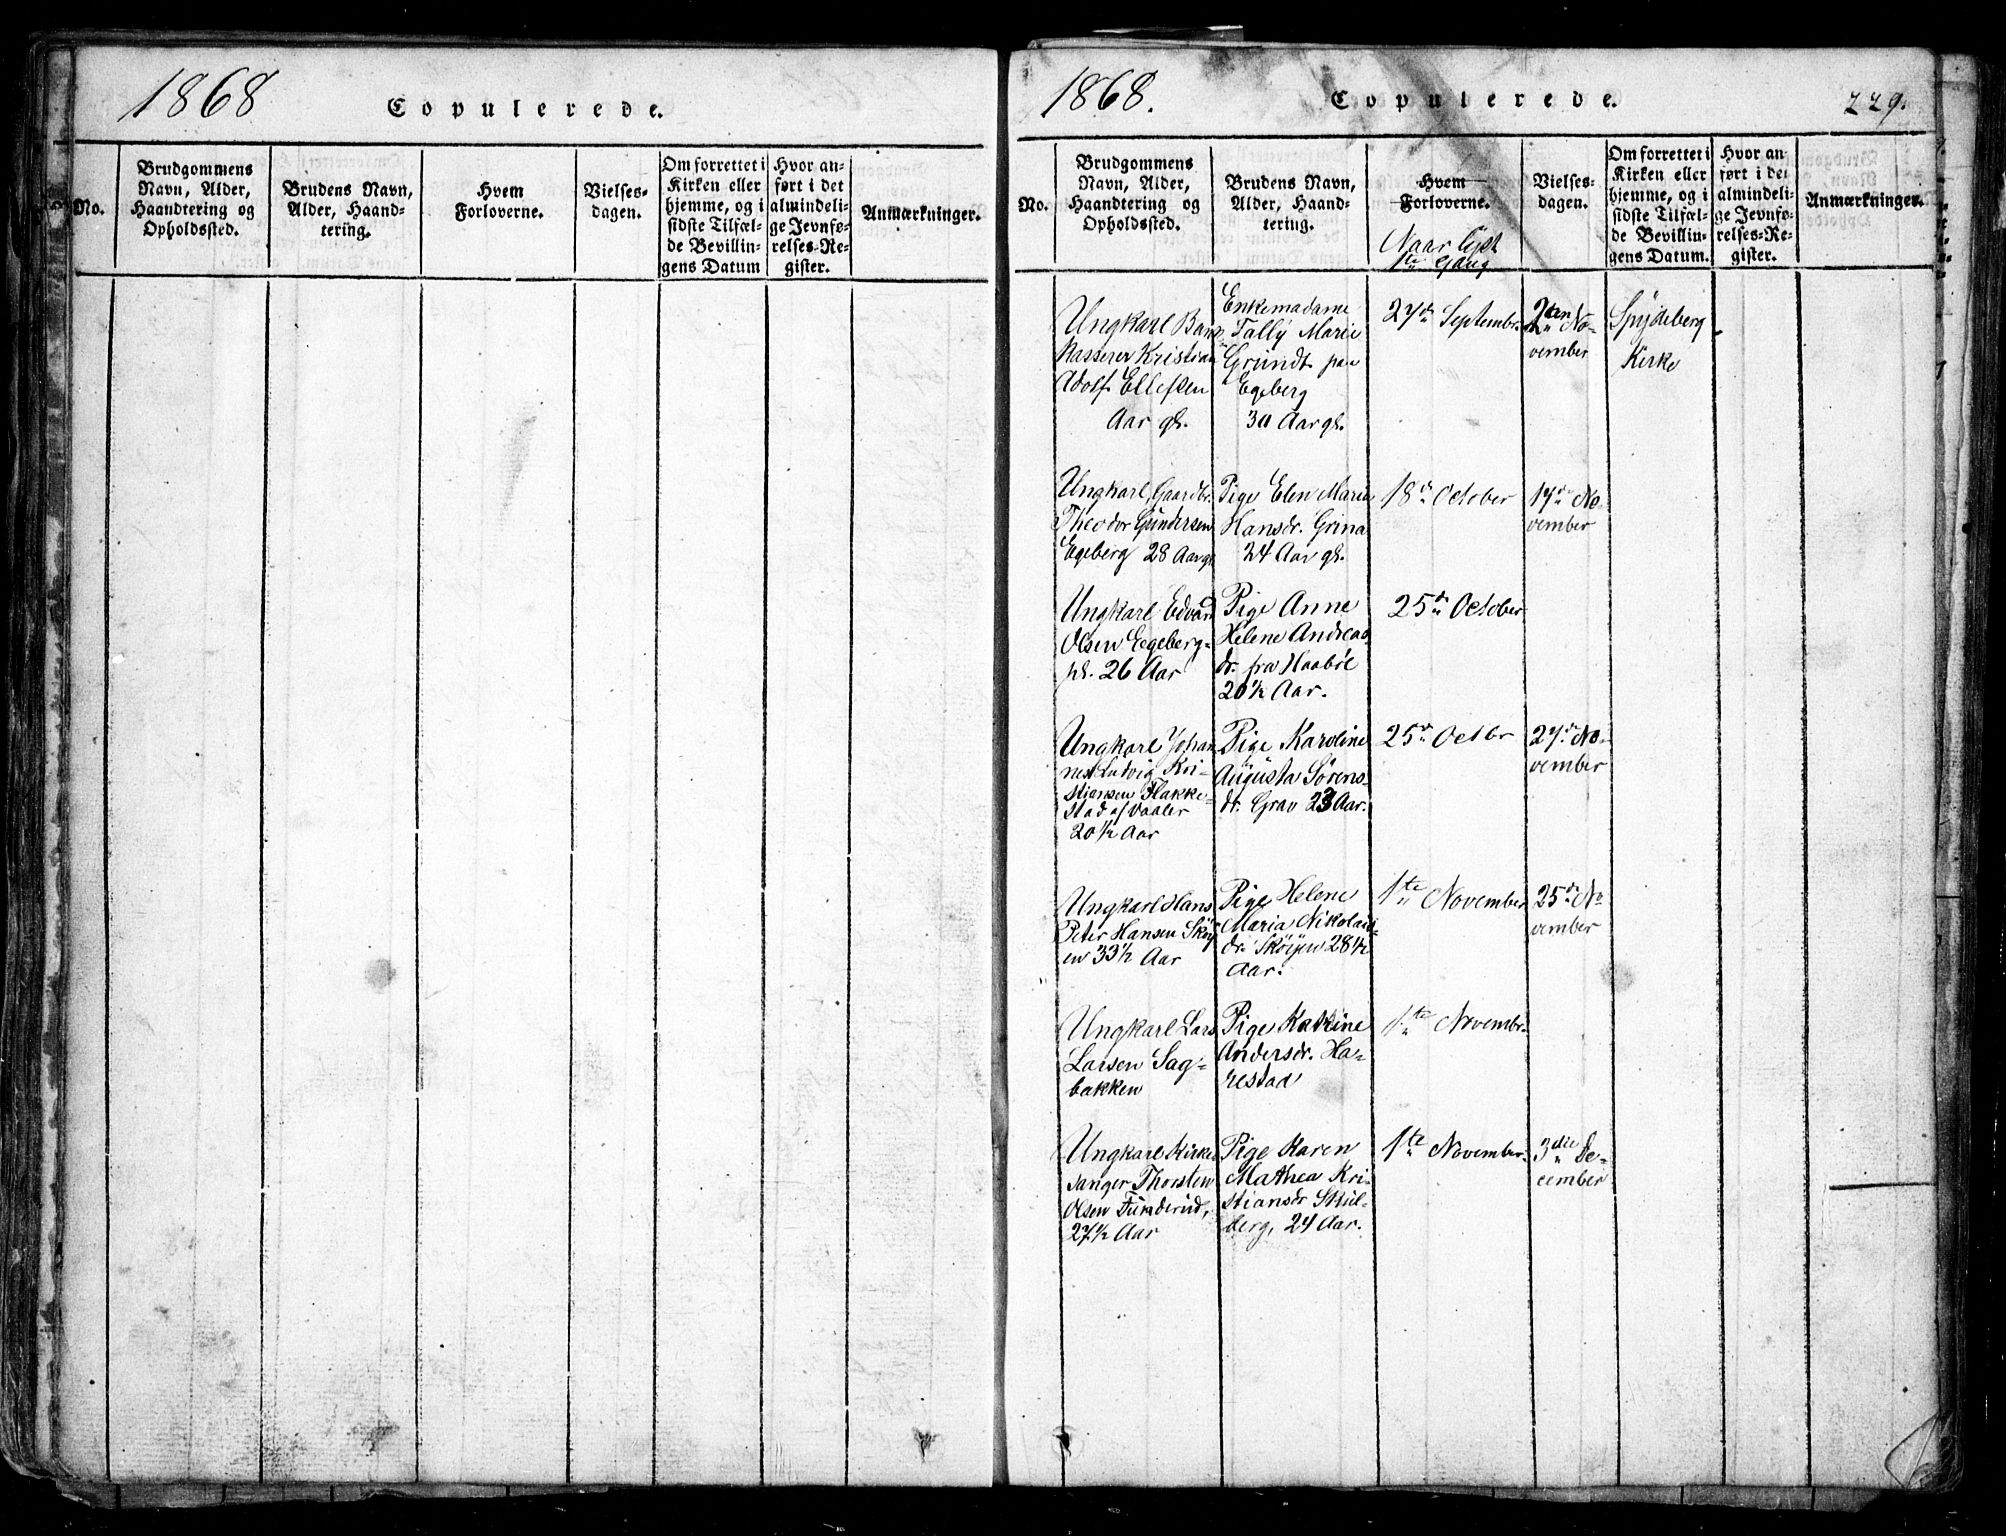 1868
Copulerede.
No.
Brudgommens
Navn, Alder,
Haandtering og
Opholdssted.
Brudens Navn,
Alder, Haand-
tering.
Hvem
Forloverne.
Vielses-
dagen.
Om forrettet i
Kirken eller
hjemme, og i
sidste Tilfæl-
de Bevillin-
gens Datum
Hvor an-
ført i det
almindeli-
ge Jevnfø-
relses-Re-
gister.
Anmærkninger.
1868.
Copulerede.
229.
No.
Brudgommens
Navn, Alder,
Haandtering og
Opholdssted.
Brudens Navn,
Alder, Haand-
tering.
Hvem
Forloverne.
Naar lyst
1te Gang
Vielses-
dagen.
Om forrettet i
Kirken eller
hjemme, og i
sidste Tilfæl-
de Bevillin-
gens Datum.
Hvor an-
ført i det
almindeli-
ge Jevnfø-
relses-Re-
gister.
Anmærkninger.
Ungkarl Bank-
kasserer Kristian
Adolf Ellefsen
Aar gl.
Enkemadame
Tally Marie
Grundt paa
Egeberg
30 Aar gl.
27de Septembr.
2den No-
vember
Spydeberg
Kirke
Ungkarl Gaardbr.
Theodor Gundersen
Egeberg 28 Aar gl.
Pige Elen Marie
Hansdr. Grina
24 Aar gl.
18de October
17de No-
vember
Ungkarl Edvard
Olsen Egeberg-
pl. 26 Aar
Pige Anne
Helene Andreas
dr. fra Haabøl
20½ Aar.
25de October
Ungkarl Johan
nes Ludvig Kri-
stiansen Flakke-
stad af Vaaler
20½ Aar
Pige Karoline
Augusta Sørens-
dr. Grav 23 Aar.
25de Octbr
27de No-
vember
Ungkarl Hans
Peter Hansen Skøy
en 33½ Aar
Pige Helene
Maria Nikolais-
dr. Skøijen 28½
Aar.
1te November
25de No
vember
Ungkarl Lars
Larsen Sag-
bakken
Pige Katrine
Andersdr. Ha-
restad
1te Novembr.
Ungkarl Kirke
sanger Thorsten
Olsen Funderud,
27½ Aar
Pige Karen
Mathea Kri-
stiansdr Skul-
berg, 24 Aar.
1te November.
3die De-
cember